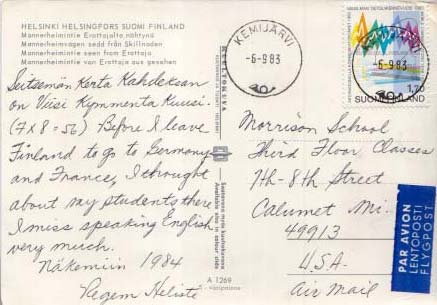 HELSINKI HELSINGFORS SUOMI FINLAND
Mannerheimintie Erottajalta nähtynä
Mannerheimvägen sedd från Skillnaden
Mannerheimintie seen from Erottaja
Mannerheimintie von Erottaja aus gesehen
Seitsemän Kerta Kahdeksan
on Viisi Kymmenta Kuusi.
(7 x 8 = 56) Before I leave
Finland to go to Germany
and France, I thought
about my students there.
I miss speaking English
very much.
Näkemiin 1984
A 1269
KEMIJÄRVI
-6-9 83
KEMIJÄRVI
-6-9 83
1,70
SUOMI FINLAND
Morrison School
Third Floor Classes
7th-8th Street
Calumet Mi.
49913
U.S.A.
Air Mail
PAR AVION
LENTOPOSTI
FLYGPOST